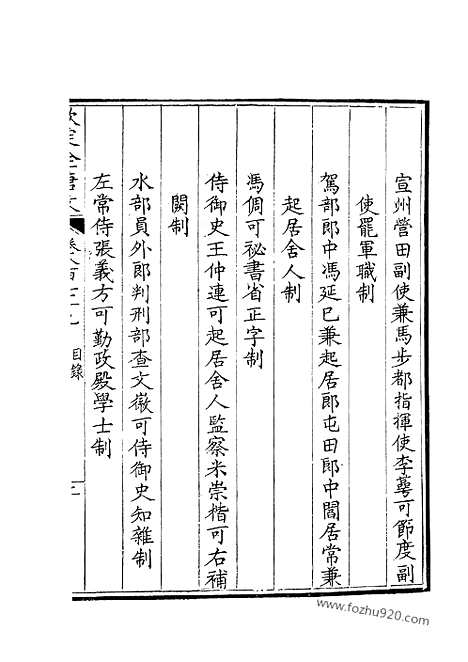 宣州營田副使兼馬步都指揮使李萼可節度副
使罷軍職制
駕部郎中馮延巳兼起居郎屯田郎中閻居常兼
起居舍人制
馮倜可祕書省正字制
侍御史王仲連可起居舍人監察米崇楷可右補
闕制
水部員外郎判刑部查文徽可侍御史知雜制
左常侍張義方可勤政殿學士制
欽定全唐文
目錄
www.fozhu920.com